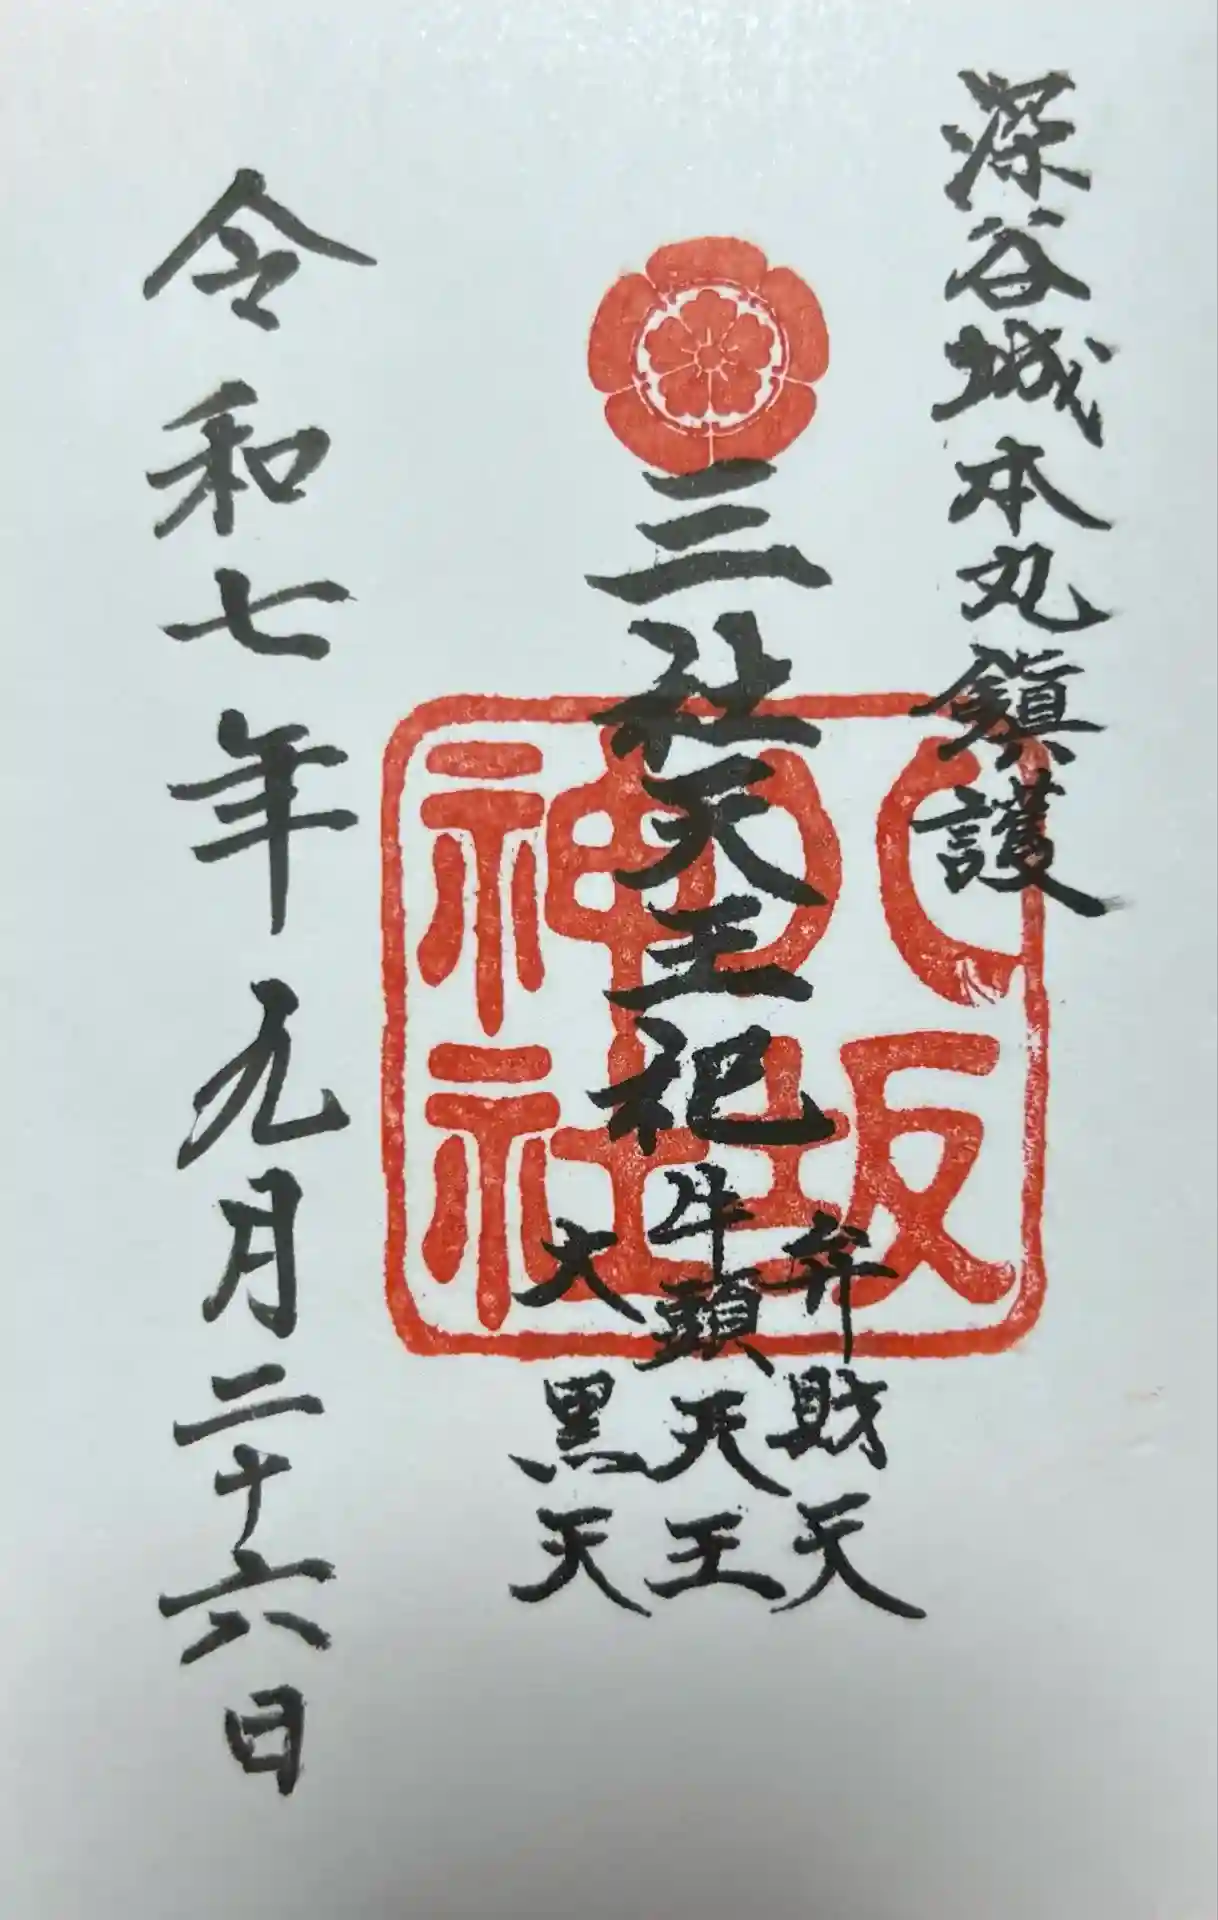 深谷城本丸鎮護
三社天王祀
弁財天
牛頭天王
大黒天
八坂
神社
令和七年九月二十六日